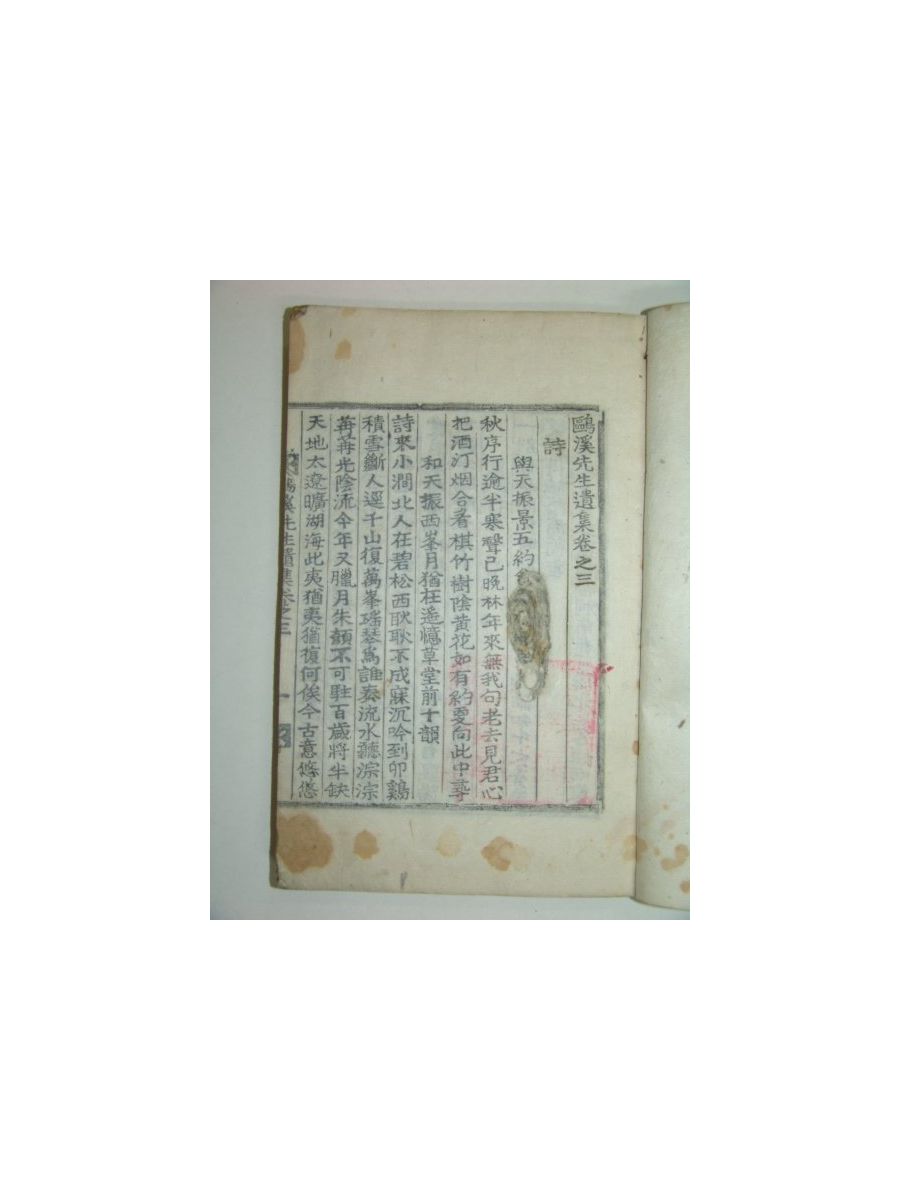 鷗溪先生遺集卷之三
詩
與天振景五約
秋序行逾半寒聲已晩林年來無我句老去見君心
把酒汀烟合看棋竹樹陰黄花如有約更向此中尋
和天振西峯月猶枉遥憶草堂前十韻
詩來小澗北人在碧松西耿耿不成寐沉吟到卯鷄
積雪斷人逕千山復萬峯瑤琴爲誰奏流水聽淙淙
苒苒光陰流今年又臘月朱顔不可駐百歲將半缺
天地太遼曠湖海此夷猶夷猶復何俟今古意悠悠
溪先生遺集卷之三
一